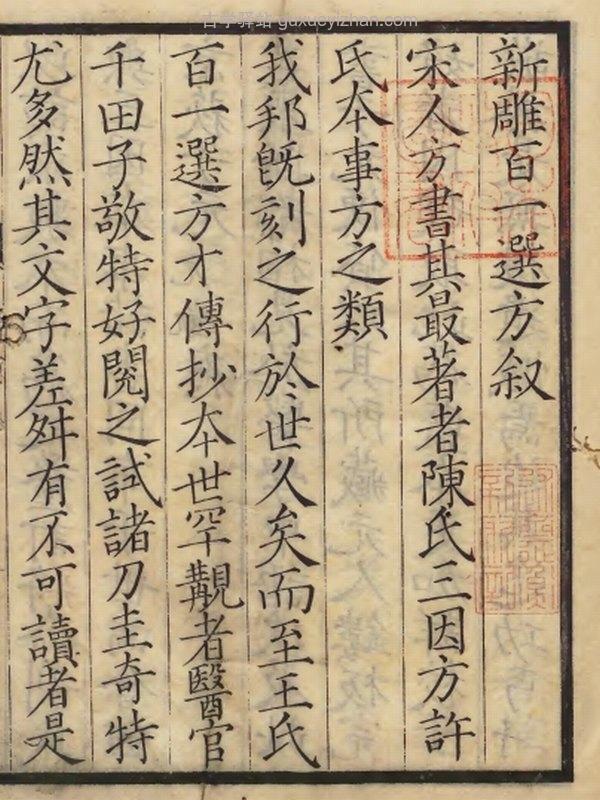 古学驿站 guxueyizhan.com
新雕百一選方叙
宋人方書其最著者陳氏三因方許
氏本事方之類
我邦旣刻之行於世久矣而至王氏
百一選方才傳抄本世罕觏者醫官
千田子敬特好閱之試諸刀圭奇特
尤多然其文字差舛有不可讀者是